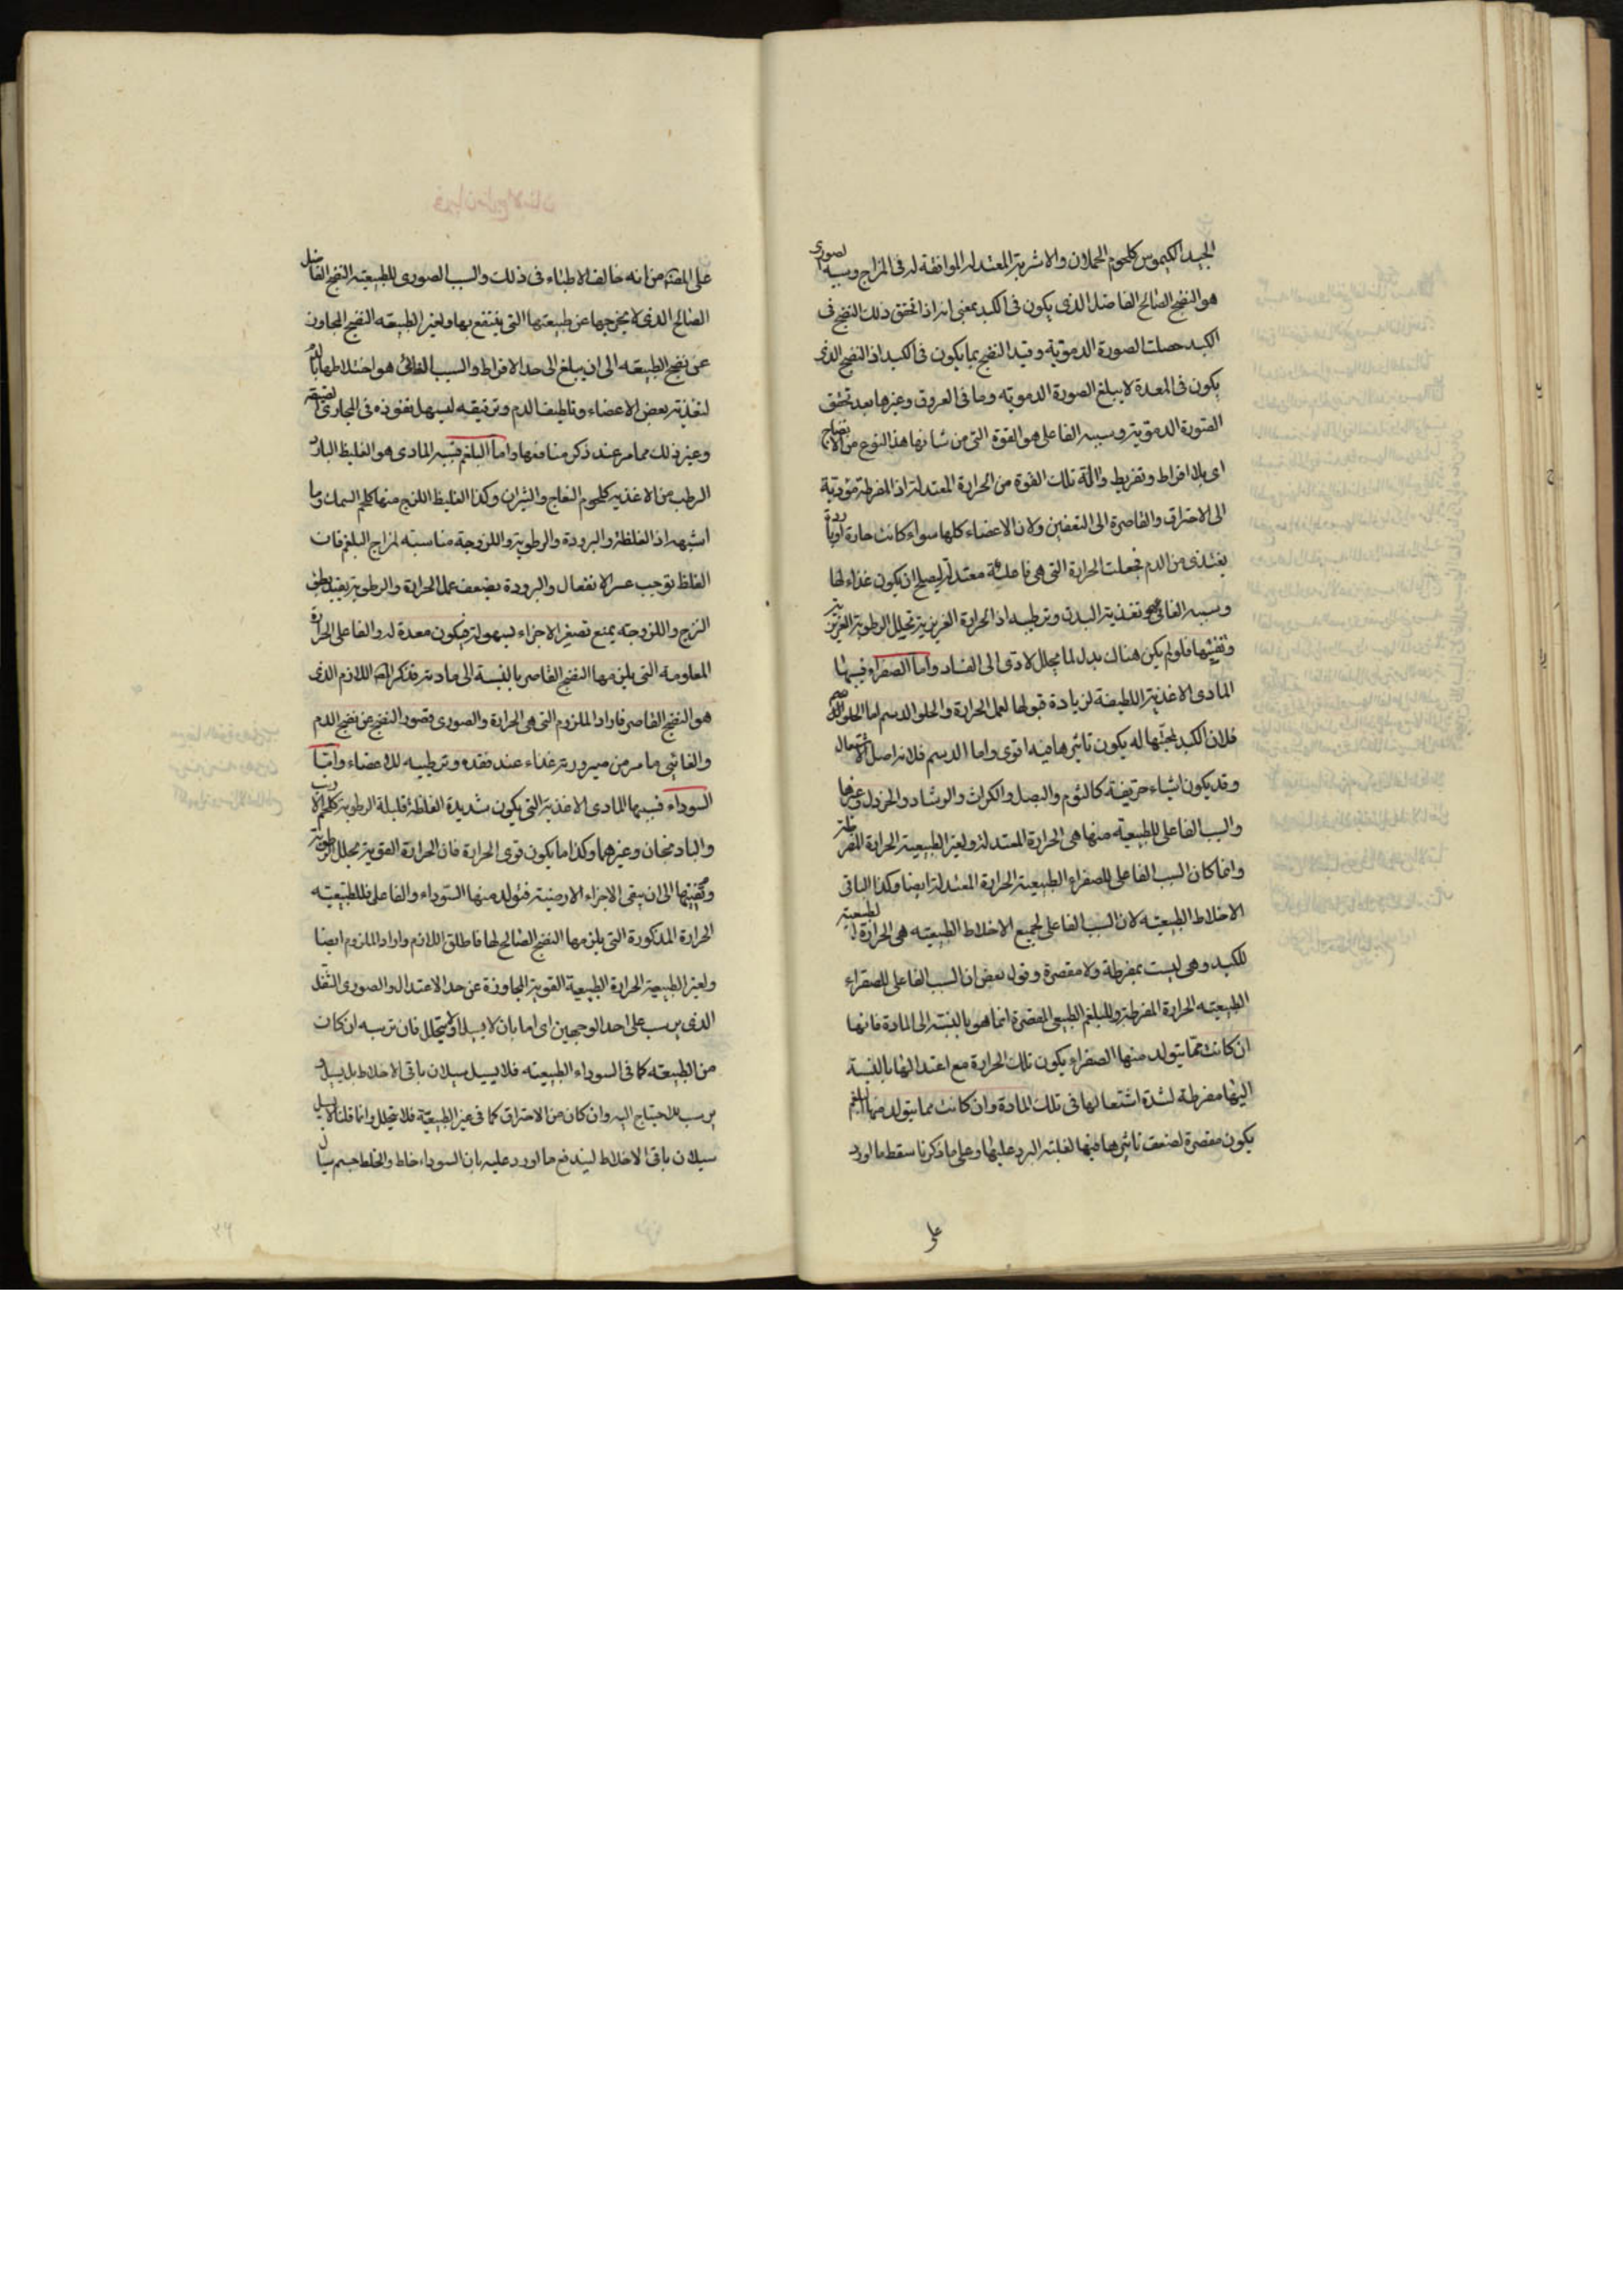 الجيد الكيموس كلحوم الحملان والاشربة المعتدلة الموافقة له فى المزاج وسببه الصورى
هو النضج الصالح الفاضل الذى يكون فى الكبد بمعنى انه اذا تحقق ذلك النضج فى
الكبد حصلت الصورة الدموية وقيد النضج بما يكون فى الكبد اذ النضج الذى
يكون فى المعدة لا يبلغ الصورة الدموية وما فى العروق وغيرها بعد تحقق
الصورة الدموية وسببه الفاعلى هو القوة التى من شانها هذا النوع من الانضاج
اى بلا افراط وتفريط وآلة تلك القوة من الحرارة المعتدلة اذ المفرطة مؤدية
الى الاحتراق والقاصرة الى التعفين ولان الاعضاء كلها سواء كانت حارة او باردة
يغتذى من الدم فجعلت الحرارة التى هى فاعلة معتدلة ليصلح ان يكون غذاء لها
وسببه الغائى هو تغذية البدن وترطيبه اذ الحرارة الغريزية تحلل الرطوبة الغريزية
وتفنيها فلو لم يكن هناك بدل لما يحلل لادى الى الفساد واما الصفراء فسببها
المادى الاغذية اللطيفة لزيادة قبولها لعمل الحرارة والحلو الدسم اما الحلو
فلان الكبد لمحبتها له يكون تاثيرها فيه اقوى واما الدسم فلانه اصل الاشتعال
وقد يكون اشياء حريفة كالثوم والبصل والكراث والرشاد والخردل وغيرها
والسبب الفاعلى للطبيعية منها هى الحرارة المعتدلة ولغير الطبيعية الحرارة المفرطة
وانما كان السبب الفاعلى للصفراء الطبيعية الحرارة المعتدلة ايضا وكذا الباقى
الاخلاط الطبيعية لان السبب الفاعلى لجميع الاخلاط الطبيعية هى الحرارة الطبيعية
للكبد وهى ليست بمفرطة ولا مقصرة وقول بعض ان السبب الفاعلى للصفراء
الطبيعية الحرارة المفرطة وللبلغم الطبيعى المقصرة انما هو بالنسبة الى المادة فانها
ان كانت مما يتولد منها الصفراء يكون تلك الحرارة مع اعتدالها بالنسبة
اليها مفرطة لشدة اشتعالها فى تلك المادة وان كانت مما يتولد منها البلغم
يكون مقصرة لضعف تاثيرها فيها لغلبة البرد عليها وعلى ما ذكرنا سقط ما اورد
على
على المصنف من انه خالف الاطباء فى ذلك والسبب الصورى للطبيعية النضج الفاضل
الصالح الذى لا يخرجها عن طبيعتها التى ينتفع بها ولغير الطبيعة النضج المجاوز
عن نضج الطبيعة الى ان يبلغ الى حد الافراط والسبب الغائى هو اختلاطها بالدم
لتغذية بعض الاعضاء وتلطيف الدم وترقيقه ليسهل نفوذه فى المجارى الضيقة
وغير ذلك مما مر عند ذكر منافعها واما البلغم فسببه المادى هو الغليظ البارد
الرطب من الاغذية كلحوم النعاج والثيران وكذا الغليظ اللزج منها كلحم السمك وما
اشبهه اذ الغلظة والبرودة والرطوبة واللزوجة مناسبة لمزاج البلغم فان
الغلظ توجب عسر الانفعال والبرودة يضعف عمل الحرارة والرطوبة
اللزج واللزوجة يمنع تصغير الاجزاء بسهولة فيكون معدة له والفاعلى الحرارة
المعلومة التى يلزمها النضج القاصر بالنسبة الى مادته فذكر اللازم الذى
هو النضج القاصر فاراد الملزوم التى هى الحرارة والصورى قصور النضج عن نضج الدم
والغائى ما مر من صيرورته غذاء عند فقده وترطيبه للاعضاء واما
السوداء فسببها المادى الاغذية التى يكون شديدة الغلظة قليلة الرطوبة كلحم الارنب
والبادنجان وغيرهما وكذا ما يكون قوى الحرارة فان الحرارة القوية يحلل الرطوبة
وتفنيها الى ان يبقى الاجزاء الارضية فتولد منها السوداء والفاعلى للطبيعية
الحرارة المذكورة التى يلزمها النضج الصالح لها فاطلق اللازم واراد الملزوم ايضا
ولغير الطبيعية الحرارة الطبيعية القوية المجاوزة عن حد الاعتدال والصورى الثفل
الذى يرسب على احد الوجهين اى اما بان لا يسيل او لا يتحلل فان ترسبه ان كان
من الطبيعة كما فى السوداء الطبيعية فلا يسيل سيلان باقى الاخلاط بل يسيل و
يرسب للاحتياج اليه وان كان من الاحتراق كما فى غير الطبيعية فلا يتحلل وانما قلنا لا يسيل
سيلان باقى الاخلاط ليندفع ما اورد عليه بان السوداء خلط والخلط جسم سيال